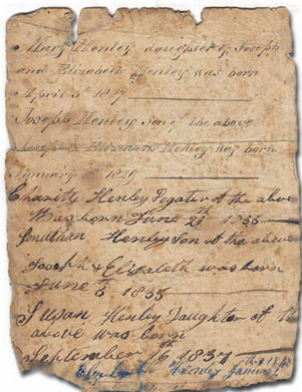 Mary Henley daughter of Joseph
and Elizabeth Henley was born
April
Joseph Henley Son of the above
Joseph & Elizabeth Henley was born
January
Charity Henley of the above
was born June 21th
Jonathan Henley Son of the above
Joseph & Elizabeth was born
June
Susan Henley Daughter of the
above was born
September 16th 1837
Henley January